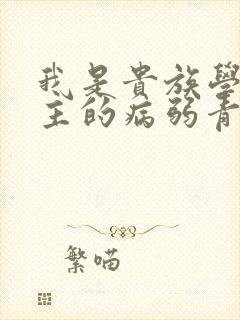 我是貴族學
主的病弱青
繁喵